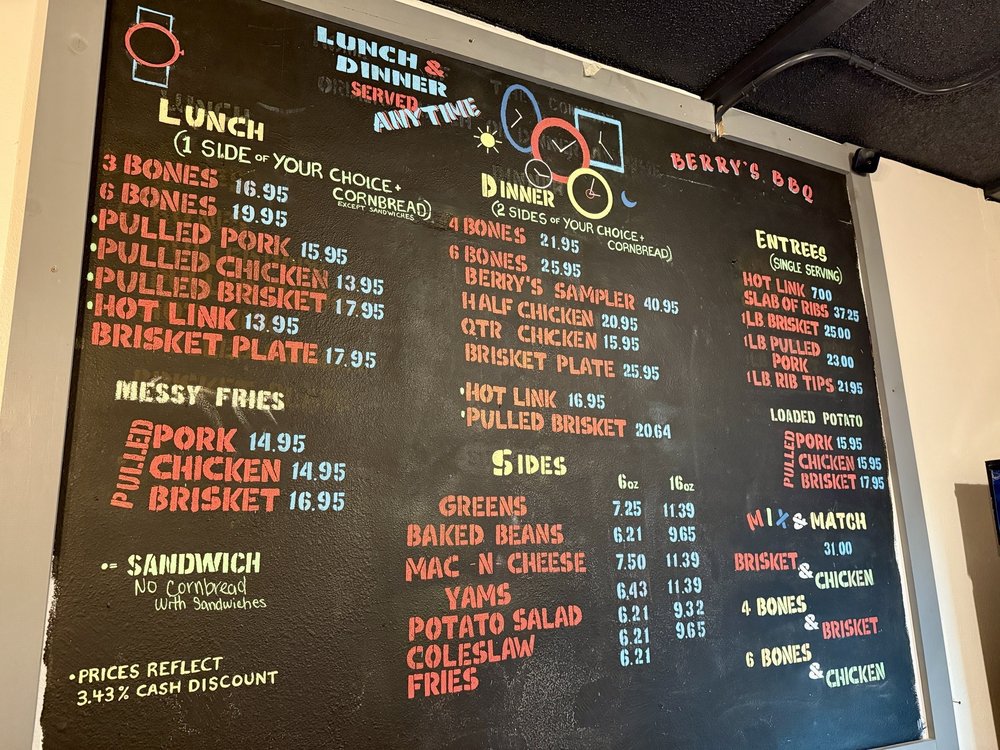 LUNCH &
DINNER
SERVED
ANYTIME
BERRY'S BBQ
LUNCH
(1 SIDE OF YOUR CHOICE +
CORNBREAD)
EXCEPT SANDWICHES
3 BONES 16.95
6 BONES 19.95
• PULLED PORK 15.95
• PULLED CHICKEN 13.95
• PULLED BRISKET 17.95
• HOT LINK 13.95
BRISKET PLATE 17.95
MESSY FRIES
PULLED
PORK 14.95
CHICKEN 14.95
BRISKET 16.95
•- SANDWICH
No Cornbread
With Sandwiches
• PRICES REFLECT
3.43% CASH DISCOUNT
DINNER
(2 SIDES OF YOUR CHOICE +
CORNBREAD)
4 BONES 21.95
6 BONES 25.95
BERRY'S SAMPLER 40.95
HALF CHICKEN 20.95
QTR CHICKEN 15.95
BRISKET PLATE 25.95
• HOT LINK 16.95
• PULLED BRISKET 20.64
SIDES
6oz 16oz
GREENS 7.25 11.39
BAKED BEANS 6.21 9.65
MAC N CHEESE 7.50 11.39
YAMS 6.43 11.39
POTATO SALAD 6.21 9.32
COLESLAW 6.21 9.65
FRIES 6.21
ENTREES
(SINGLE SERVING)
HOT LINK 7.00
SLAB OF RIBS 37.25
1LB BRISKET 25.00
1LB PULLED
PORK 23.00
1LB RIB TIPS 21.95
LOADED POTATO
PULLED
PORK 15.95
CHICKEN 15.95
BRISKET 17.95
MIX & MATCH
31.00
BRISKET
& CHICKEN
4 BONES
& BRISKET
6 BONES
& CHICKEN